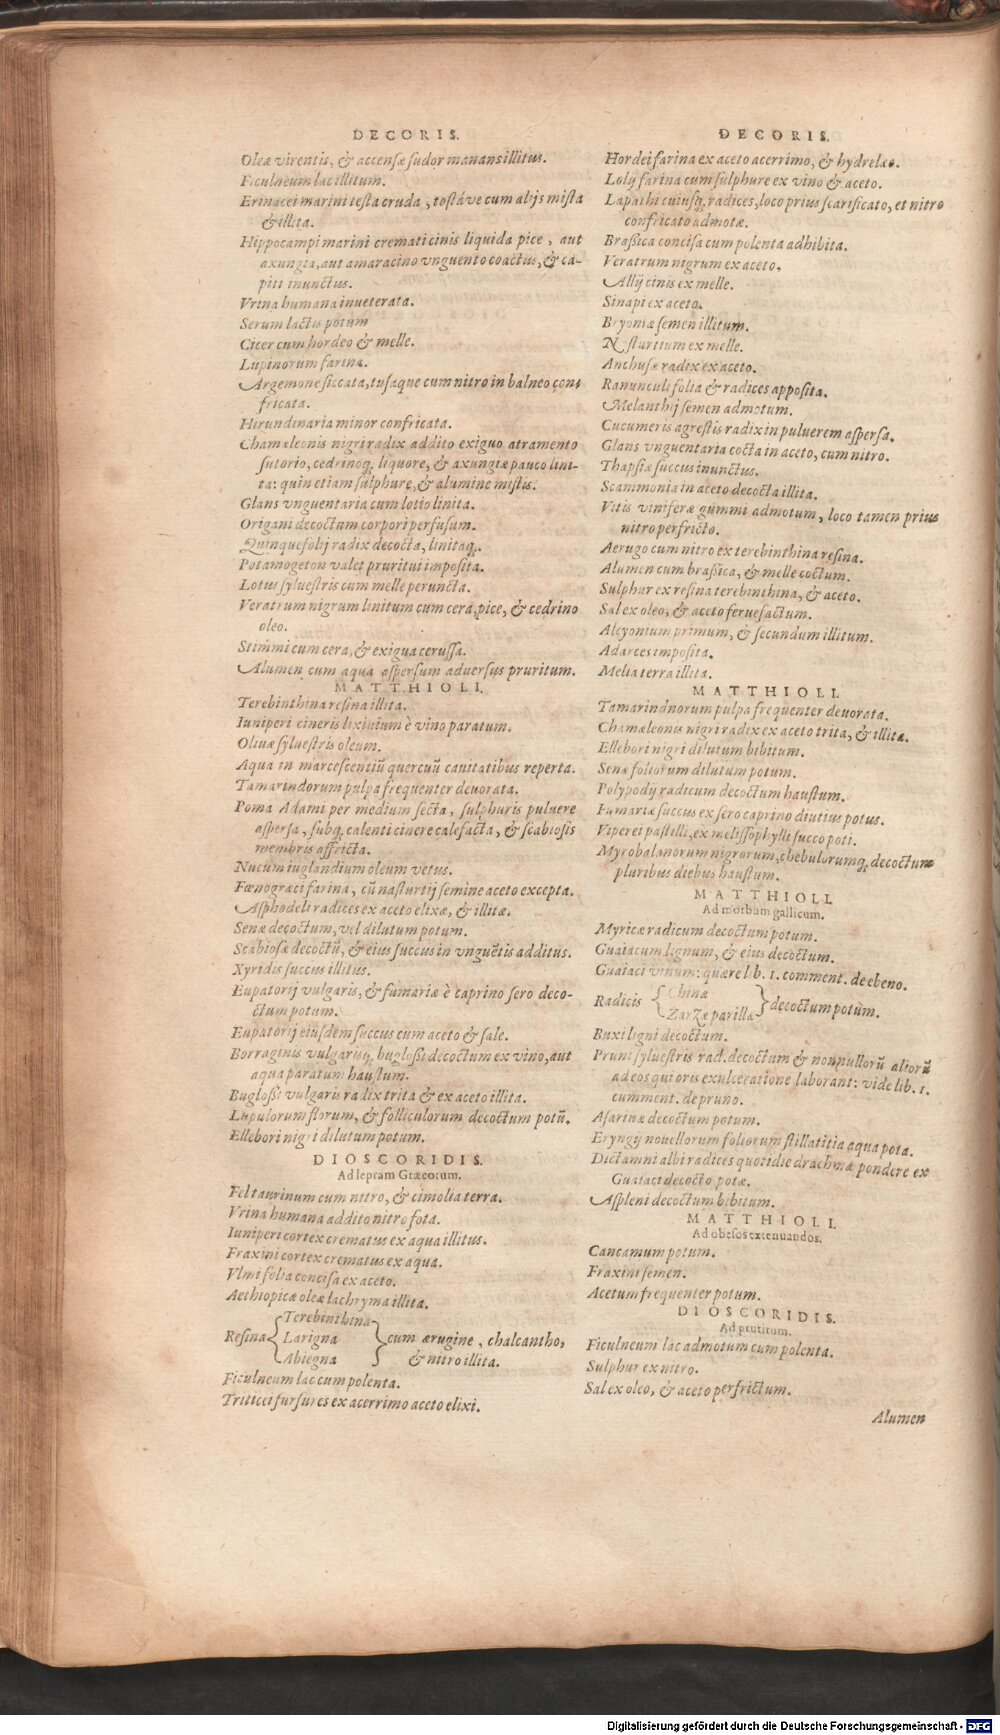 DECORIS.
Oleæ virentis, & accensæ sudor manans illitus.
Ficulneum lac illitum.
Erinacei marini testa cruda, tostáve cum alijs mista
& illita.
Hippocampi marini cremati cinis liquida pice, aut
axungia, aut amaracino vnguento coactus, & ca-
piti inunctus.
Vrina humana inueterata.
Serum lactis potum
Cicer cum hordeo & melle.
Lupinorum farina.
Argemone siccata, tusaque cum nitro in balneo con
fricata.
Hirundinaria minor confricata.
Chamæleonis nigri radix addito exiguo atramento
sutorio, cedrinoq; liquore, & axungiæ pauco lini-
ta: quin etiam sulphure, & alumine mistis.
Glans vnguentaria cum lotio linita.
Origani decoctum corpori perfusum.
Quinquefolij radix decocta, linitaq;.
Potamogeton valet pruritui imposita.
Lotus syluestris cum melle peruncta.
Veratrum nigrum linitum cum cera, pice, & cedrino
oleo.
Stimmi cum cera, & exigua cerussa.
Alumen cum aqua aspersum aduersus pruritum.
MATTHIOLI.
Terebinthina resina illita.
Iuniperi cineris lixiuium è vino paratum.
Oliuæ syluestris oleum.
Aqua in marcescentiũ quercuũ cauitatibus reperta.
Tamarindorum pulpa frequenter deuorata.
Poma Adami per medium secta, sulphuris puluere
aspersa, subq; calenti cinere calefacta, & scabiosis
membris affricta.
Nucum iuglandium oleum vetus.
Fœnogræci farina, cũ nasturtij semine aceto excepta.
Asphodeli radices ex aceto elixæ, & illitæ.
Senæ decoctum, vel dilutum potum.
Scabiosæ decoctũ, & eius succus in vnguẽtis additus.
Xyridis succus illitus.
Eupatorij vulgaris, & fumariæ è caprino sero deco-
ctum potum.
Eupatorij eiusdem succus cum aceto & sale.
Borraginis vulgarisq; buglossi decoctum ex vino, aut
aqua paratum haustum.
Buglossi vulgaris radix trita & ex aceto illita.
Lupulorum florum, & folliculorum decoctum potũ.
Ellebori nigri dilutum potum.
DIOSCORIDIS.
Ad lepram Græcorum.
Fel taurinum cum nitro, & cimolia terra.
Vrina humana addito nitro fota.
Iuniperi cortex crematus ex aqua illitus.
Fraxini cortex crematus ex aqua.
Vlmi folia concisa ex aceto.
Aethiopicæ oleæ lachryma illita.
Terebinthina
Resina { Larigna } cum ærugine, chalcantho,
Abiegna & nitro illita.
Ficulneum lac cum polenta.
Triticei furfures ex acerrimo aceto elixi.
DECORIS.
Hordei farina ex aceto acerrimo, & hydrelæo.
Lolij farina cum sulphure ex vino & aceto.
Lapathi cuiusq; radices, loco prius scarificato, et nitro
confricato admotæ.
Brassica concisa cum polenta adhibita.
Veratrum nigrum ex aceto.
Allij cinis ex melle.
Sinapi ex aceto.
Bryoniæ semen illitum.
Nasturtium ex melle.
Anchusæ radix ex aceto.
Ranunculi folia & radices apposita.
Melanthij semen admotum.
Cucumeris agrestis radix in puluerem aspersa.
Glans vnguentaria cocta in aceto, cum nitro.
Thapsiæ succus inunctus.
Scammonia in aceto decocta illita.
Vitis viniferæ gummi admotum, loco tamen prius
nitro perfricto.
Aerugo cum nitro ex terebinthina resina.
Alumen cum brassica, & melle coctum.
Sulphur ex resina terebinthina, & aceto.
Sal ex oleo, & aceto feruefactum.
Alcyonium primum, & secundum illitum.
Adarces imposita.
Melia terra illita.
MATTHIOLI.
Tamarindnorum pulpa frequenter deuorata.
Chamæleonis nigri radix ex aceto trita, & illita.
Ellebori nigri dilutum bibitum.
Senæ foliorum dilutum potum.
Polypodij radicum decoctum haustum.
Fumariæ succus ex sero caprino diutius potus.
Viperei pastilli, ex melissophylli succo poti.
Myrobalanorum nigrorum, chebulorumq; decoctum
pluribus diebus haustum.
MATTHIOLI.
Ad morbum gallicum.
Myricæ radicum decoctum potum.
Guaiacum lignum, & eius decoctum.
Guaiaci vinum: quære lib. 1. comment. de ebeno.
Radicis { Chinæ
Zarzæ parilla } decoctum potum.
Buxi ligni decoctum.
Pruni syluestris rad. decoctum & nonnullorũ aliorũ
ad eos qui oris exulceratione laborant: vide lib. 1.
cumment. de pruno.
Asarinæ decoctum potum.
Eryngij nouellorum foliorum stillatitia aqua pota.
Dictamni albi radices quotidie drachmæ pondere ex
Guaiaci decocto potæ.
Aspleni decoctum bibitum.
MATTHIOLI.
Ad obesos extenuandos.
Cancamum potum.
Fraxini semen.
Acetum frequenter potum.
DIOSCORIDIS.
Ad pruritum.
Ficulneum lac admotum cum polenta.
Sulphur ex nitro.
Sal ex oleo, & aceto perfrictum.
Alumen
Digitalisierung gefördert durch die Deutsche Forschungsgemeinschaft - DFG